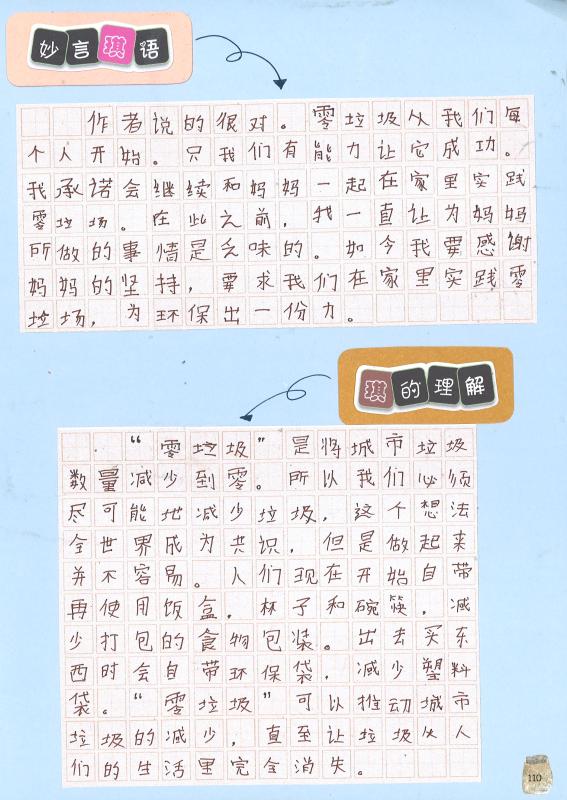 妙言琪语
作者说的很对。零垃圾从我们每
个人开始。只我们有能力让它成功。
我承诺会继续和妈妈一起在家里实践
零垃圾。在此之前，我一直让为妈妈
所做的事情是乏味的。如今我要感谢
妈妈的坚持，要求我们在家里实践零
垃圾，为环保出一份力。
琪的理解
“零垃圾”是将城市垃圾
数量减少到零。所以我们必须
尽可能地减少垃圾，这个想法
全世界成为共识，但是做起来
并不容易。人们现在开始自带
再使用饭盒，杯子和碗筷，减
少打包的食物包装。出去买东
西时会自带环保袋，减少塑料
袋。“零垃圾”可以推动城市
垃圾的减少，直至让垃圾从人
们的生活里完全消失。
110